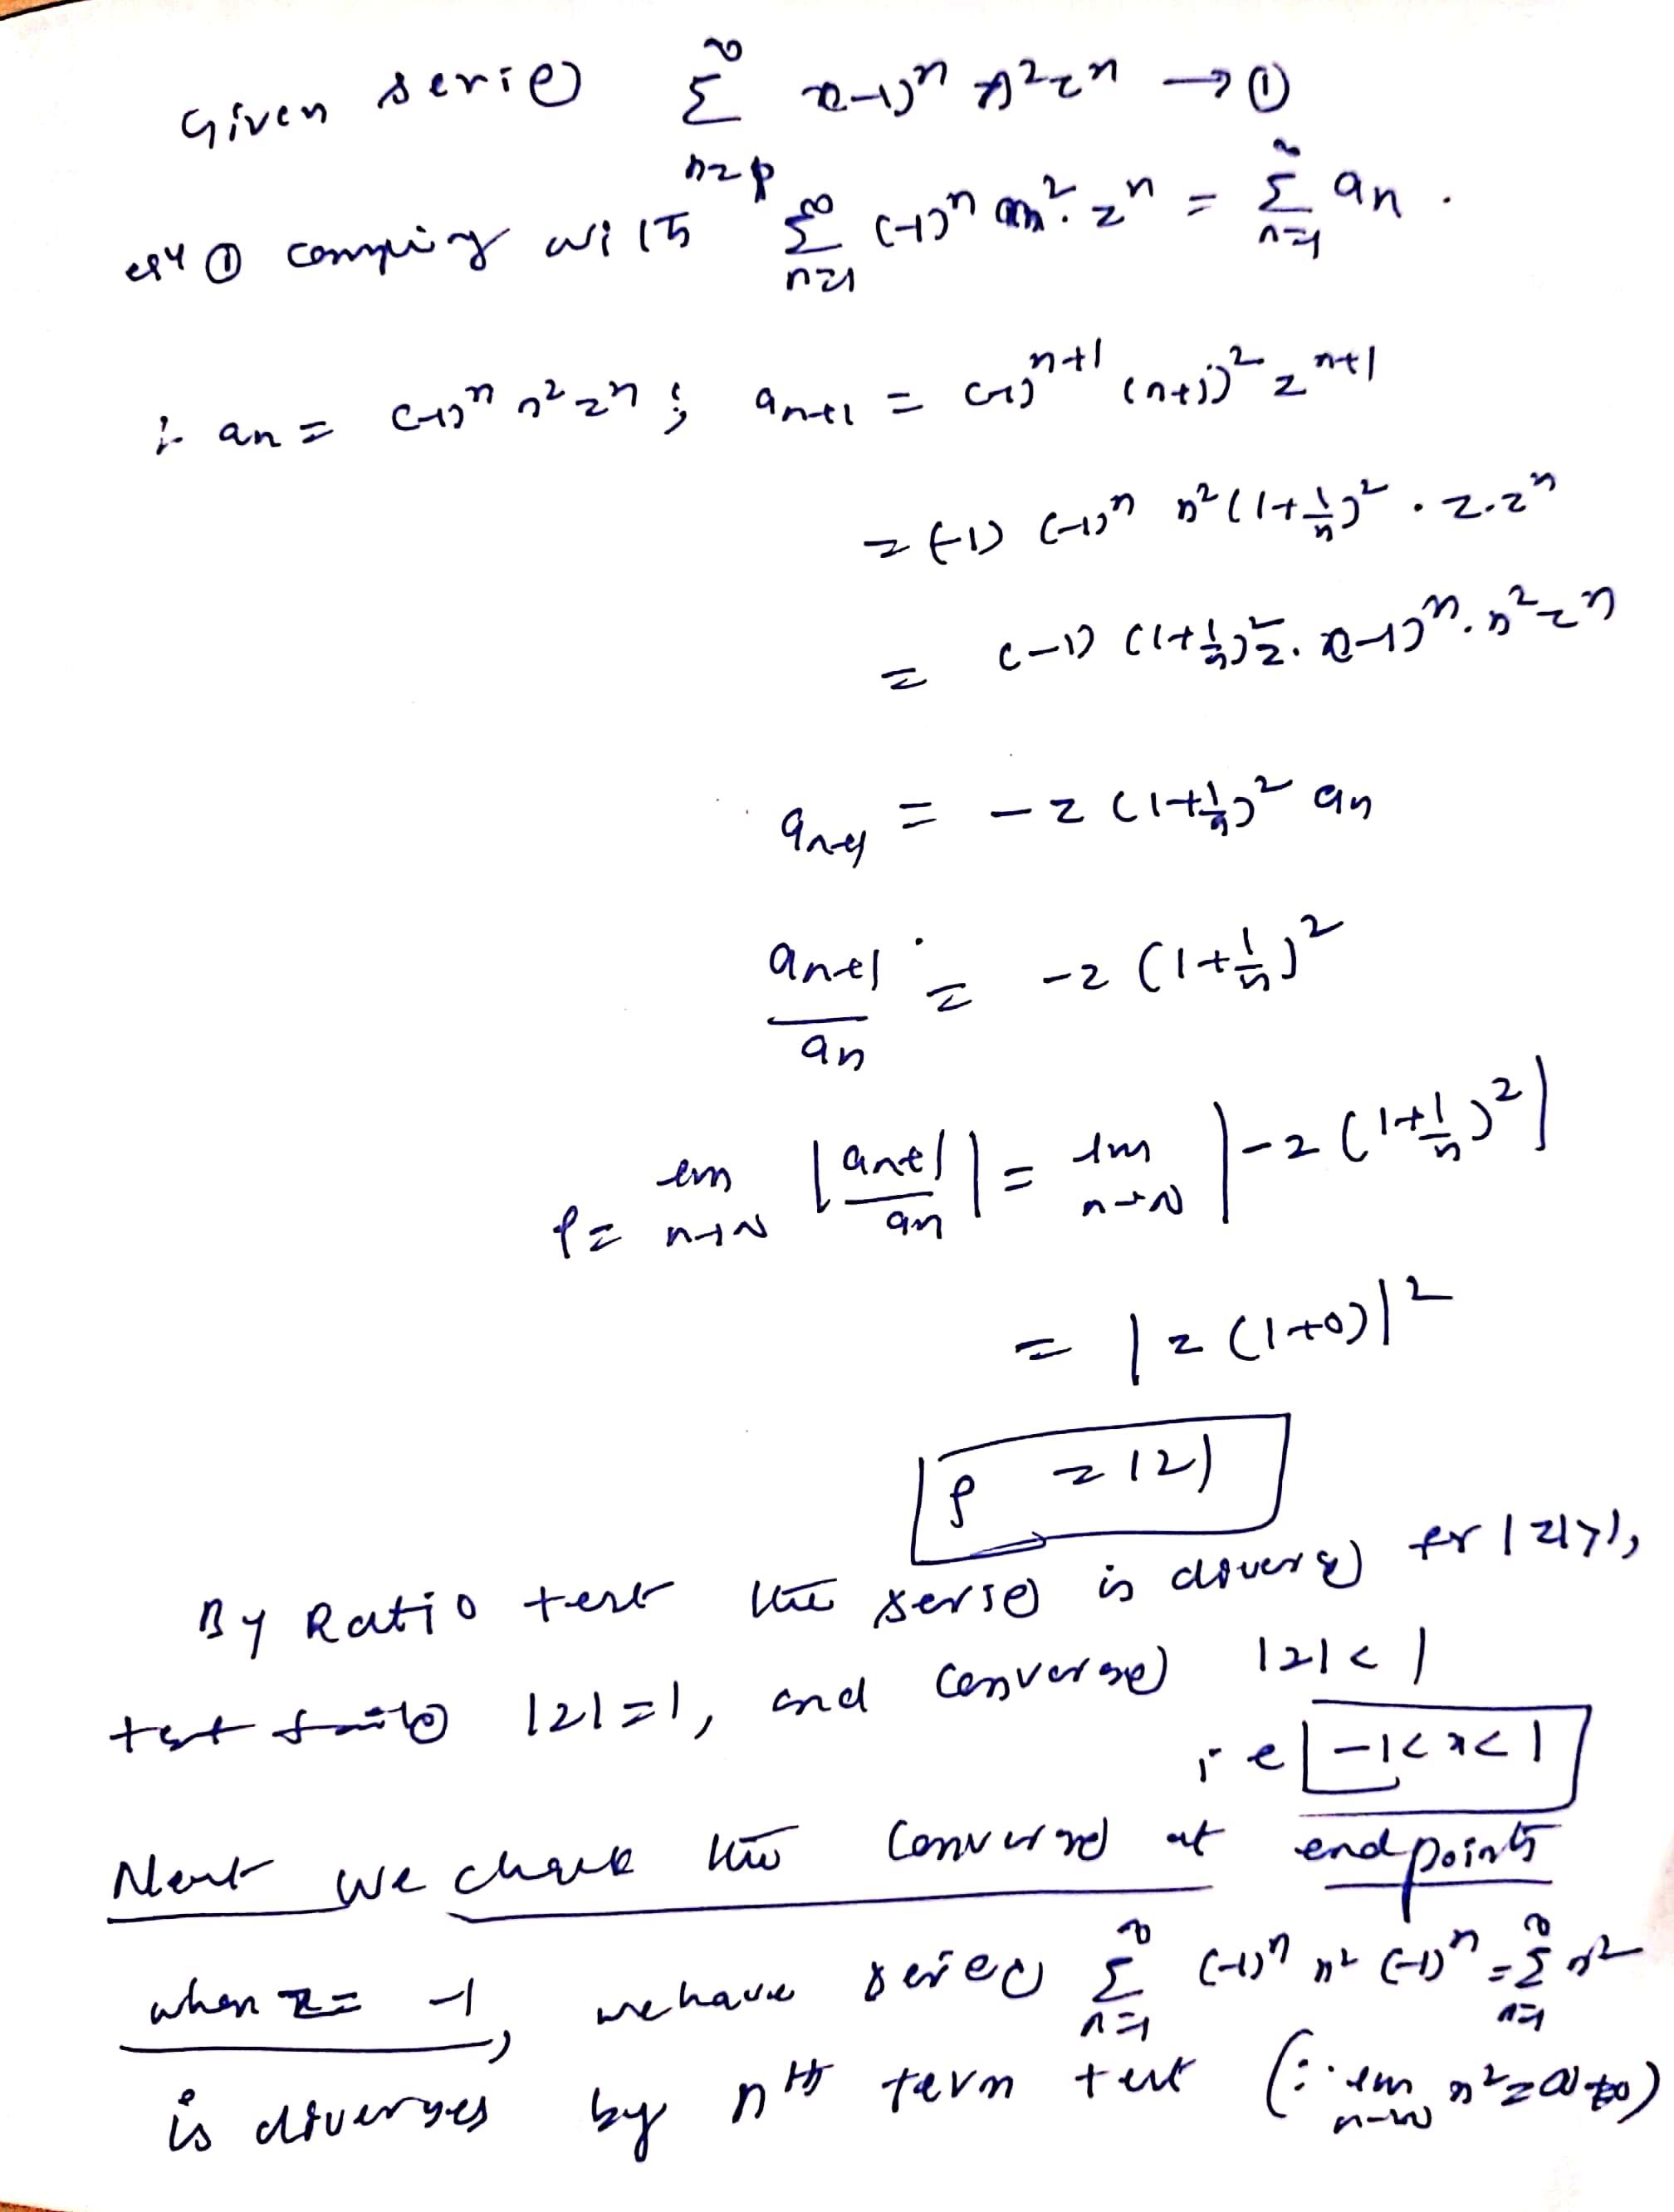 Given series ∑_{n=1}^{∞} (-1)^n n² z^n → ①
eqn ① comparing with ∑_{n=1}^{∞} (-1)^n n² z^n = ∑_{n=1}^{∞} an .
∴ an = (-1)^n n² z^n ; an+1 = (-1)^{n+1} (n+1)² z^{n+1}
= (-1) (-1)^n n² (1+1/n)² · z·z^n
= (-1) (1+1/n)² z. (-1)^n. n² z^n
an+1 = -z (1+1/n)² an
an+1/an = -z (1+1/n)²
ρ = lim_{n→∞} |an+1/an| = lim_{n→∞} |-z (1+1/n)²|
= |z (1+0)|²
ρ = |z|
By Ratio test the series is diverges for |z|>1,
test fails |z|=1, and converges |z|< 1
ie -1<x<1
Next we check the converges at endpoints
when z= -1, we have series ∑_{n=1}^{∞} (-1)^n n² (-1)^n = ∑_{n=1}^{∞} n²
is diverges by nth term test (∵ lim_{n→∞} n² = ∞ ≠0)